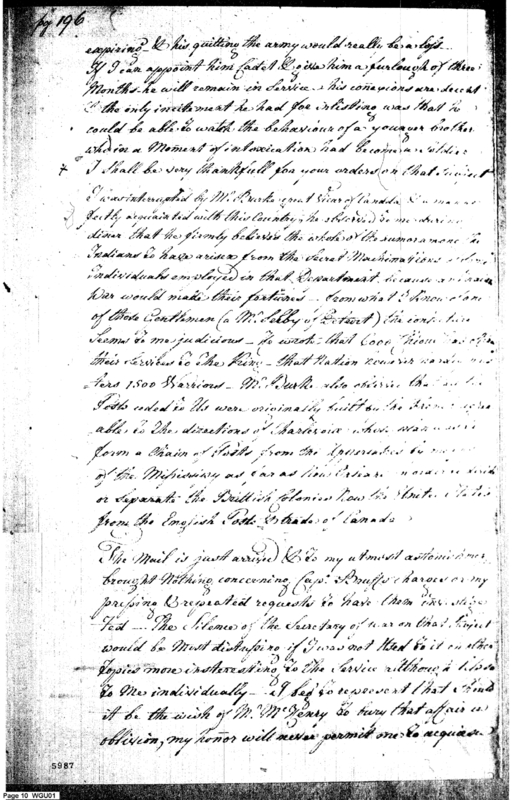 pg 196
expiring & his quitting the army would really be a loss...
If I can appoint him Cadet & give him a furlough of three
Months he will remain in Service his conexions are decent
& the only incitement he had for enlisting was that he
could be able to watch the behaviour of a younger brother
who in a Moment of intoxication had become a Soldier
I shall be very thankfull for your orders on that Subject
I was interrupted by Mr. Burke great Vicar of Canada & a man
fectly acquainted with this Country; he observed to me during
diner that he firmly believes the whole of the rumors among the
Indians to have arisen from the Secret Machinations of
individuals employed in that Department because an indian
War would make their fortunes — from what I know of one
of those Gentlemen (a Mr. Selby of Detroit) the conjecture
Seems to me judicious — he wrote that
their Services to the King — that Nation however
1500 Warriors — Mr. Burke also observes that
Posts ceded to Us were originally built by the French
able to the directions of Charlevoix whose
form a Chain of Posts from the
of the Missisipy as far as in order to
or Separate the Brittish Colonies Now the United States
from the English Posts & trade of Canada
The Mail is just arrived & to my utmost astonishment
brought Nothing concerning Capt. Bruffs charges or my
pressing & repeated requests to have them investiga
ted — The Silence of the Secretary of war on that Subject
would be Most distressing if I was not Used to it on other
Topics more insteresting to the Service although less so
to Me individually — I beg to represent that Should
it be the wish of Mr. McHenry to bury that affair in
oblivion, my honor will never permit me to acquiese
5987
Page 10 WGU01